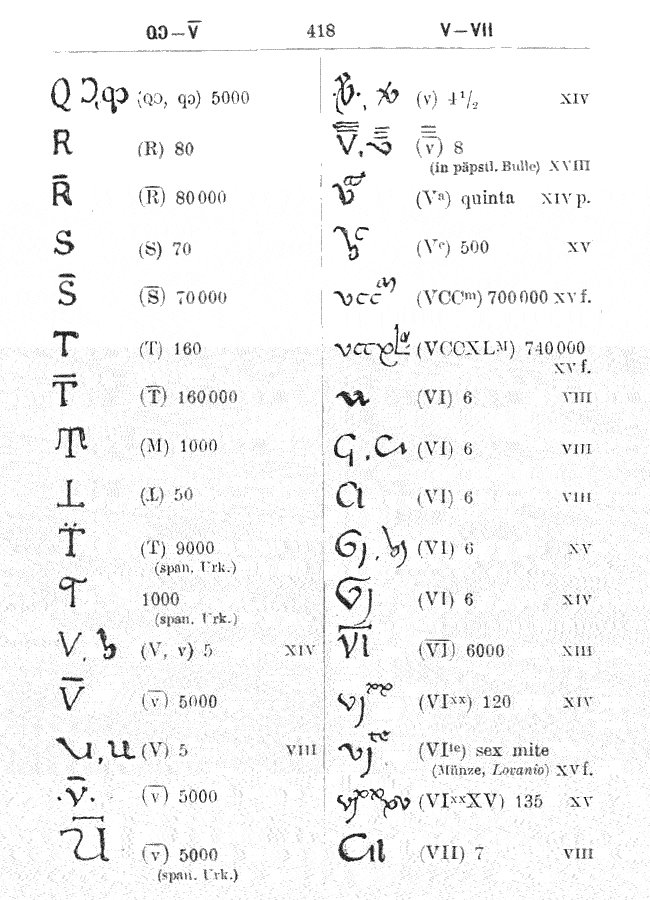 QƆ—V̅ 418 V—VII
Q Ɔ, qɔ (QƆ, qɔ) 5000
R (R) 80
R̅ (R̅) 80000
S (S) 70
S̅ (S̅) 70000
T (T) 160
T̅ (T̅) 160000
(M) 1000
⊥ (L) 50
T̈ (T) 9000
(span. Urk.)
1000
(span. Urk.)
V, (V, v) 5 XIV
V̅ (v̅) 5000
u, u (V) 5 VIII
·v̅· (v̅) 5000
U̅ (v̅) 5000
(span. Urk.)
(v) 4 1/2 XIV
(v̿̅) 8
(in päpstl. Bulle) XVIII
vᵃ (Vᵃ) quinta XIV p.
(Vᶜ) 500 XV
vccᵐ (VCCᵐ) 700000 XV f.
(VCCXLᴹ) 740000
XV f.
u (VI) 6 VIII
G, CI (VI) 6 VIII
CI (VI) 6 VIII
Gj, (VI) 6 XV
(VI) 6 XIV
V̅I̅ (V̅I̅) 6000 XIII
vjˣˣ (VIˣˣ) 120 XIV
vjᵗᵉ (VIᵗᵉ) sex mite
(Münze, Lovanio) XV f.
vjˣˣxv (VIˣˣXV) 135 XV
CII (VII) 7 VIII